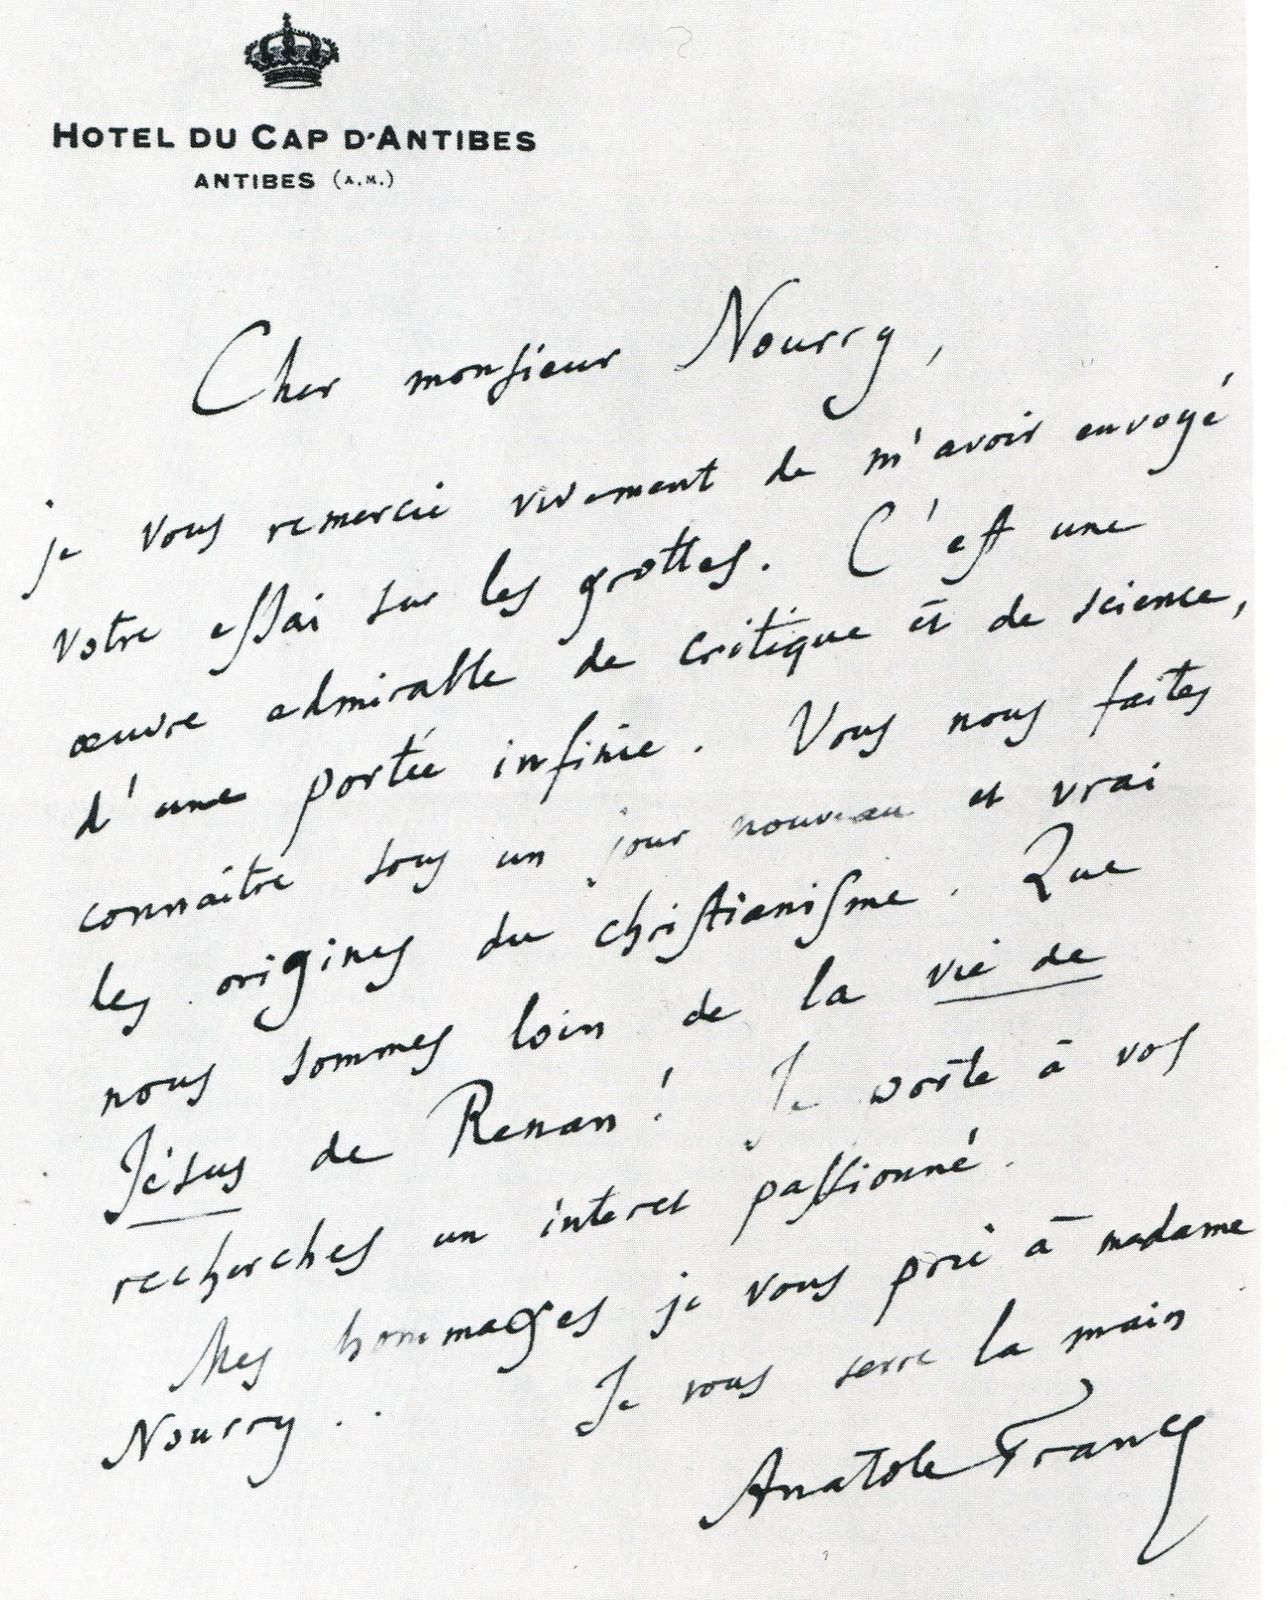 HOTEL DU CAP D'ANTIBES
ANTIBES (A.M.)
Cher monsieur Nourry,
je vous remercie vivement de m'avoir envoyé
votre essai sur les grottes. C'est une
œuvre admirable de critique et de science,
d'une portée infinie. Vous nous faites
connaître sous un jour nouveau et vrai
les origines du christianisme. Que
nous sommes loin de la vie de
Jésus de Renan! Je porte à vos
recherches un interet passionné.
Mes hommages je vous prie à madame
Nourry..
Je vous serre la main
Anatole France